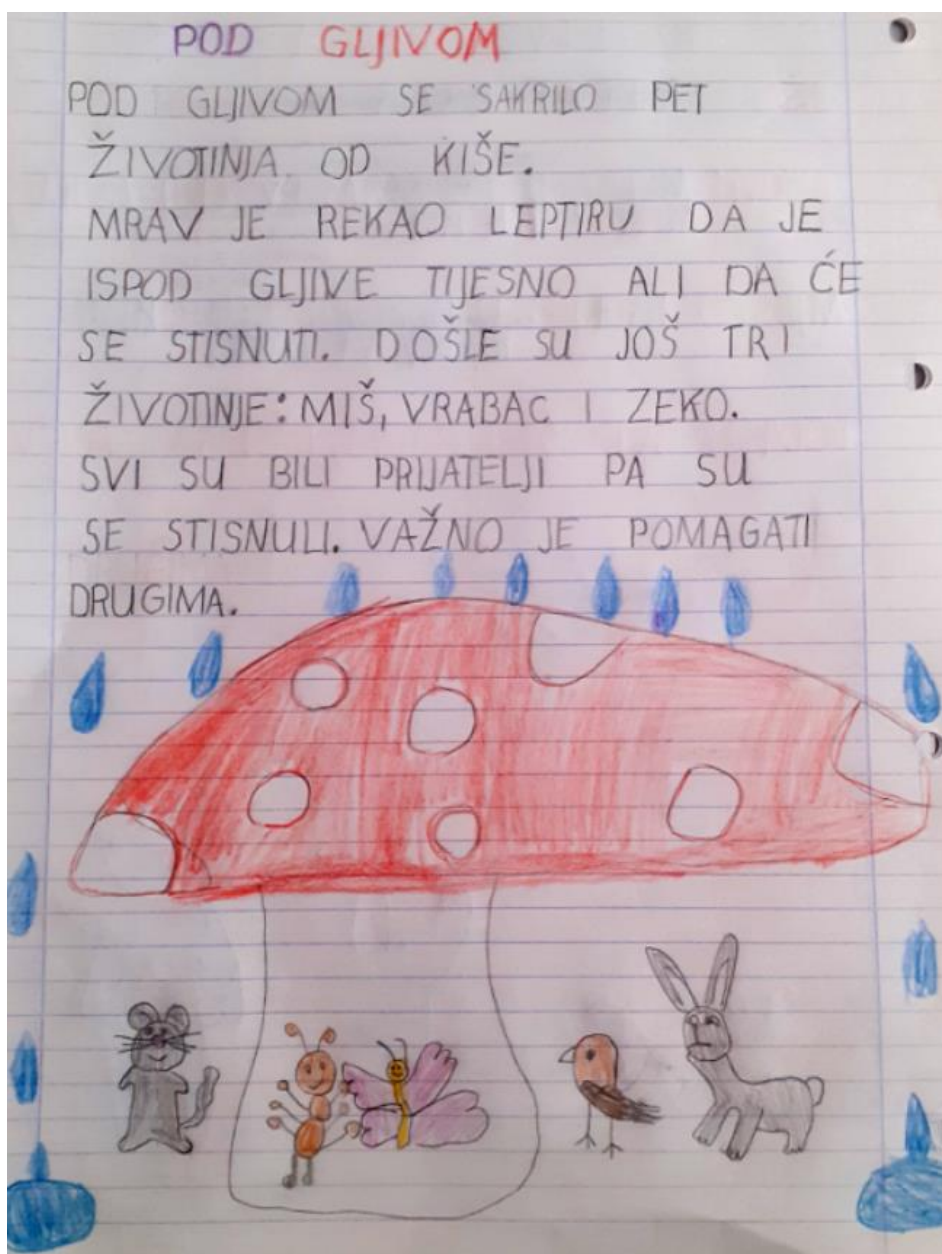 POD GLJIVOM
POD GLJIVOM SE SAKRILO PET
ŽIVOTINJA OD KIŠE.
MRAV JE REKAO LEPTIRU DA JE
ISPOD GLJIVE TIJESNO ALI DA ĆE
SE STISNUTI. DOŠLE SU JOŠ TRI
ŽIVOTINJE: MIŠ, VRABAC I ZEKO.
SVI SU BILI PRIJATELJI PA SU
SE STISNULI. VAŽNO JE POMAGATI
DRUGIMA.